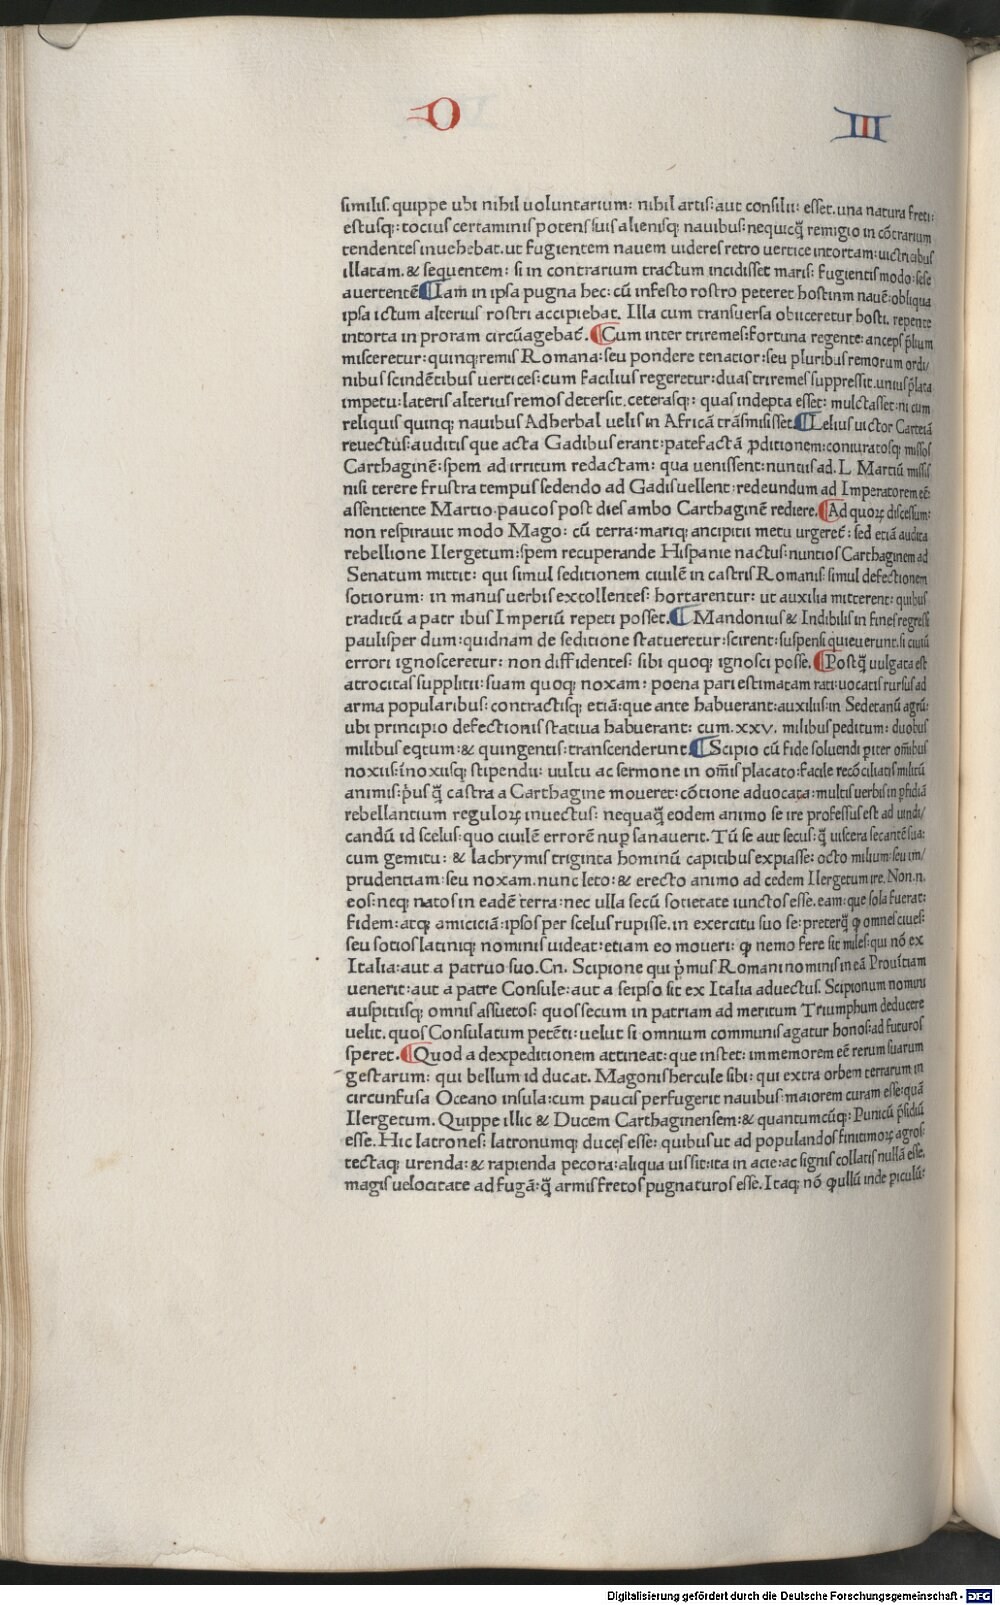 D III
similis. quippe ubi nihil uoluntarium: nihil artis: aut consilii: esset. una natura freti:
estusq;: tocius certaminis potens suis alienisq; nauibus: nequicq̃ remigio in cõtrarium
tendentes inuehebat. ut fugientem nauem uideres retro uertice intortam: uictricibus
illatam. & sequentem: si in contrarium tractum incidisset maris: fugientis modo: sese
auertentẽ ¶ Iam in ipsa pugna hec: cũ infesto rostro peteret hostinm nauẽ: obliqua
ipsa ictum alterius rostri accipiebat. Illa cum transuersa obiiceretur hosti. repente
intorta in proram circũagebat̃. ¶ Cum inter triremes: fortuna regente: anceps p̃lium
misceretur: quinq; remis Romana: seu pondere tenatior: seu pluribus remorum ordi/
nibus scindẽtibus uertices: cum facilius regeretur: duas triremes suppressit. unius p̃lata
impetu: lateris alterius remos detersit. ceterasq;: quas indepta esset: mulctasset: ni cum
reliquis quinq; nauibus Adherbal uelis in Africã trãsmisisset ¶ Lelius uictor Carteiã
reuectus: auditis que acta Gadibus erant: patefactã ꝓditionem: coniuratosq; missos
Carthaginẽ: spem ad irritum redactam: qua uenissent: nuntiis ad. L Martiũ missis
nisi terere frustra tempus sedendo ad Gadis uellent: redeundum ad Imperatorem eẽ:
assentiente Martio. paucos post dies ambo Carthaginẽ rediere. ¶ Ad quoꝝ discessum:
non respirauit modo Mago: cũ terra: mariq; ancipitii metu urgeret̃: sed etiã audita
rebellione Ilergetum: spem recuperande Hispanie nactus: nuntios Carthaginem ad
Senatum mittit: qui simul seditionem ciuilẽ in castris Romanis: simul defectionem
sotiorum: in manus uerbis extollentes: hortarentur: ut auxilia mitterent: quibus
traditũ a patr ibus Imperiũ repeti posset. ¶ Mandonius & Indibilis in fines regressi
paulisper dum: quidnam de seditione statueretur: scirent: suspensi quieuerunt. si ciuiũ
errori ignosceretur: non diffidentes: sibi quoq; ignosci posse. ¶ Postq̃ uulgata est
atrocitas supplitii: suam quoq; noxam: poena pari estimatam rati: uocatis rursus ad
arma popularibus: contractisq; etiã: que ante habuerant: auxilus: in Sedetanũ agrũ:
ubi principio defectionis statiua habuerant: cum. xxv. milibus peditum: duobus
milibus eq̃tum: & quingentis: transcenderunt ¶ Scipio cũ fide soluendi ꝑiter om̃ibus
noxiis: ĩnoxiisq; stipendii: uultu ac sermone in om̃is placato: facile recõciliatis militũ
animis: p̃us q̃ castra a Carthagine moueret: cõtione aduocata: multis uerbis in ꝑfidiã
rebellantium reguloꝝ inuectus: nequaq̃ eodem animo se ire professus est ad uindi/
candũ id scelus: quo ciuilẽ errorẽ nuꝑ sanauerit. Tũ se aut secus: q̃ uiscera secantẽ sua:
cum gemitu: & lachrymis triginta hominũ capitibus expiasse: octo milium: seu im/
prudentiam: seu noxam. nunc leto: & erecto animo ad cedem Ilergetum ire. Non. n.
eos: neq; natos in eadẽ terra: nec ulla secũ societate iunctos esse. eam: que sola fuerat:
fidem: atq; amiciciã: ipsos per scelus rupisse. in exercitu suo se: preterq̃ ꝙ omnes ciues:
seu sotios latiniq; nominis uideat: etiam eo moueri: ꝙ nemo fere sit miles: qui nõ ex
Italia: aut a patruo suo. Cn. Scipione qui p̃mus Romani nominis in eã Prouĩtiam
uenerit: aut a patre Consule: aut a seipso sit ex Italia aduectus. Scipionum nomini
auspitiisq; omnis assuetos: quos secum in patriam ad meritum Triumphum deducere
uelit. quos Consulatum petẽti: uelut si omnium communis agatur honos: ad futuros
speret. ¶ Quod a dexpeditionem attineat: que instet: immemorem eẽ rerum suarum
gestarum: qui bellum id ducat. Magonis hercule sibi: qui extra orbem terrarum in
circunfusa Oceano insula: cum paucis perfugerit nauibus: maiorem curam esse: quã
Ilergetum. Quippe illic & Ducem Carthaginensem: & quantumcũq;: Punicũ p̃sidiũ
esse. Hic latrones: latronumq; duces esse: quibus ut ad populandos finitimoꝝ agros:
tectaq; urenda: & rapienda pecora: aliqua uis sit: ita in acie: ac signis collatis nullã esse.
magis uelocitate ad fugã: q̃ armis fretos pugnaturos esse. Itaq; nõ ꝙ ullũ inde ꝑiculũ:
Digitalisierung gefördert durch die Deutsche Forschungsgemeinschaft - DFG